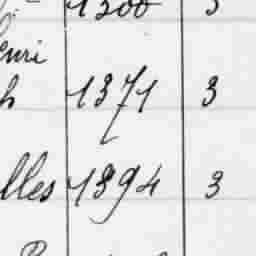 1300 3
enri
h 1371 3
lles 1894 3